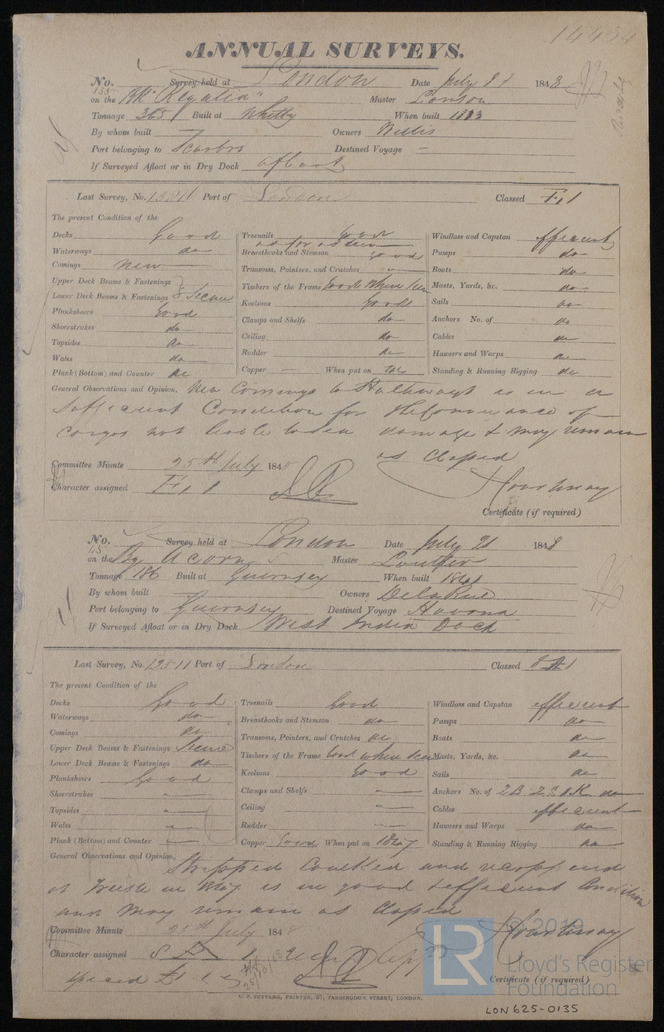 14434
ANNUAL SURVEYS.
No. 155 Survey held at London Date July 21 1848
on the Bk "Regatta" Master
Tonnage 365 Built at Whitby When built
By whom built — Owners Willis
Port belonging to Scarbro Destined Voyage —
If Surveyed Afloat or in Dry Dock afloat
Last Survey, No. Port of London Classed Æ 1
The present Condition of the
Decks Good
Waterways do
Comings New
Upper Deck Beams & Fastenings
Lower Deck Beams & Fastenings & Secure
Planksheers Good
Sheerstrakes do
Topsides do
Wales do
Plank (Bottom) and Counter do
Treenails Good
as far as seen
Breasthooks and Stemson good
Transoms, Pointers, and Crutches —
Timbers of the Frame Good Where seen
Keelsons Good
Clamps and Shelfs do
Ceiling do
Rudder do
Copper — When put on
Windlass and Capstan efficient
Pumps do
Boats do
Masts, Yards, &c. do
Sails do
Anchors No. of do
Cables do
Hawsers and Warps do
Standing & Running Rigging do
General Observations and Opinion, New Comings to Hatchways is in a
Sufficient Condition for the Conveyance of
Cargos not liable to Sea damage & may remain
as Classed
Committee Minute 25th July 184
Character assigned Æ 1
Courtenay
Certificate (if required)
No. 45 Survey held at London Date July 21 1848
on the Bg Acorn Master
Tonnage 186 Built at Guernsey When built
By whom built — Owners De la Rue
Port belonging to Guernsey Destined Voyage Havana
If Surveyed Afloat or in Dry Dock West India Dock
Last Survey, No. Port of London Classed 8 A 1
The present Condition of the
Decks Good
Waterways do
Comings do
Upper Deck Beams & Fastenings Secure
Lower Deck Beams & Fastenings do
Planksheers Good
Sheerstrakes —
Topsides —
Wales —
Plank (Bottom) and Counter —
Treenails Good
Breasthooks and Stemson do
Transoms, Pointers, and Crutches do
Timbers of the Frame Good where seen
Keelsons Good
Clamps and Shelfs —
Ceiling —
Rudder —
Copper Good When put on 1847
Windlass and Capstan efficient
Pumps do
Boats do
Masts, Yards, &c. do
Sails do
Anchors No. of 2 B 2 S & K do
Cables efficient
Hawsers and Warps do
Standing & Running Rigging do
General Observations and Opinion, Stripped Caulked and
in 1847 is in good & efficient Condition
and May remain as Classed
Committee Minute 25th July 184
Character assigned 8 A 1
Courtenay
Certificate (if required)
LR © 2019
Lloyd's Register
Foundation
LON 625-0135